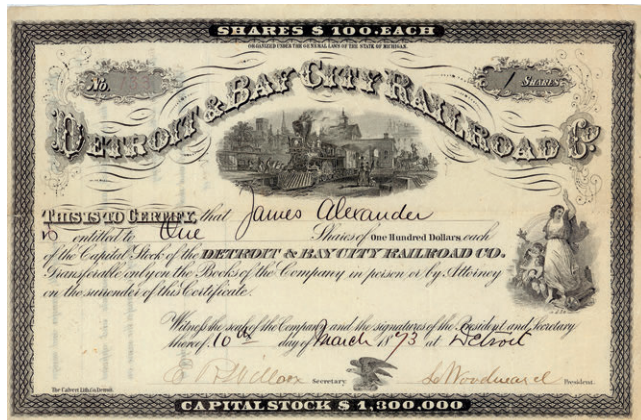 SHARES $100.EACH
ORGANIZED UNDER THE GENERAL LAWS OF THE STATE OF MICHIGAN.
No.
1 SHARES
DETROIT & BAY CITY RAILROAD Co.
THIS IS TO CERTIFY, that James Alexander
is entitled to One Shares of One Hundred Dollars, each
of the Capital Stock of the DETROIT & BAY CITY RAILROAD CO.
Transferable only on the Books of the Company in person or by Attorney
on the surrender of this Certificate.
Witness the seal of the Company and the signatures of the President and Secretary
thereof, 10th day of March 1873 at Detroit
Secretary
President.
The Calvert Lith. Co. Detroit.
CAPITAL STOCK $1,300,000